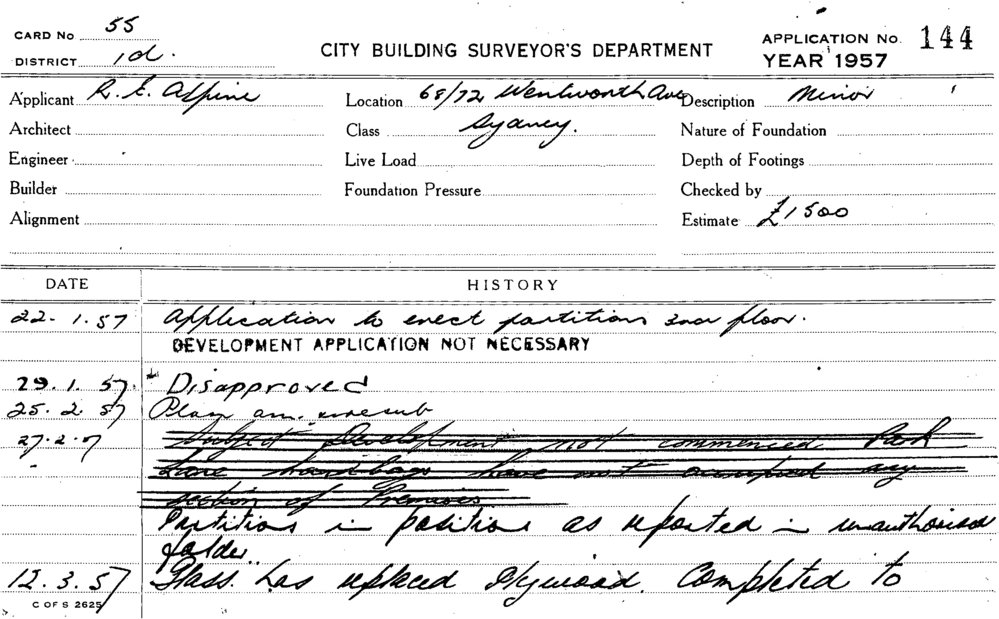 CARD No 55
DISTRICT 1d.
CITY BUILDING SURVEYOR'S DEPARTMENT
APPLICATION No. 144
YEAR 1957
Applicant R. E. Alpine
Location 68/72 Wentworth Ave
Description Minor
Architect
Class Sydney.
Nature of Foundation
Engineer
Live Load
Depth of Footings
Builder
Foundation Pressure
Checked by
Alignment
Estimate £1500
DATE
HISTORY
22. 1. 57 Application to erect partitions floor.
DEVELOPMENT APPLICATION NOT NECESSARY
29. 1. 57. Disapproved
25. 2. 57 Plan am.
27. 2. 57 Subject Development not commenced Park
Lane handbags have not occupied any
section of Premises
Partitions in position as reported in unauthorised
folder
12. 3. 57 Glass has replaced Plywood. Completed to
C OF S 2625